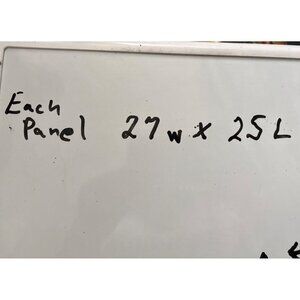 Each
Panel 27 w x 25 L